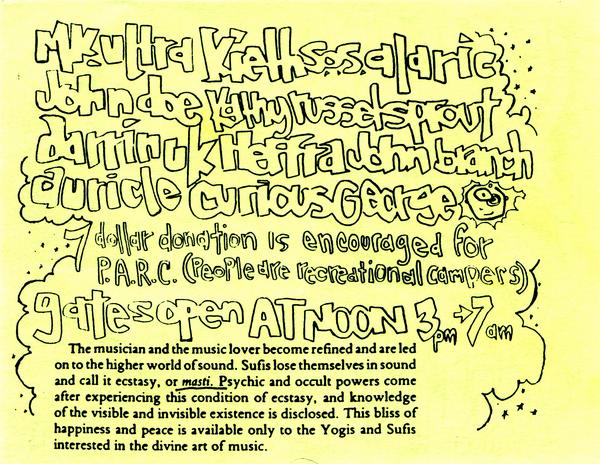 MKultra Kieth s.o.s. alaric
John doe Kathy russelsprout
darrin uk Heffra John branch
auricle curious George
7 dollar donation is encouraged for
P.A.R.C. (People are recreational campers)
gates open AT NOON 3pm → 7am
The musician and the music lover become refined and are led
on to the higher world of sound. Sufis lose themselves in sound
and call it ecstasy, or masti. Psychic and occult powers come
after experiencing this condition of ecstasy, and knowledge
of the visible and invisible existence is disclosed. This bliss of
happiness and peace is available only to the Yogis and Sufis
interested in the divine art of music.